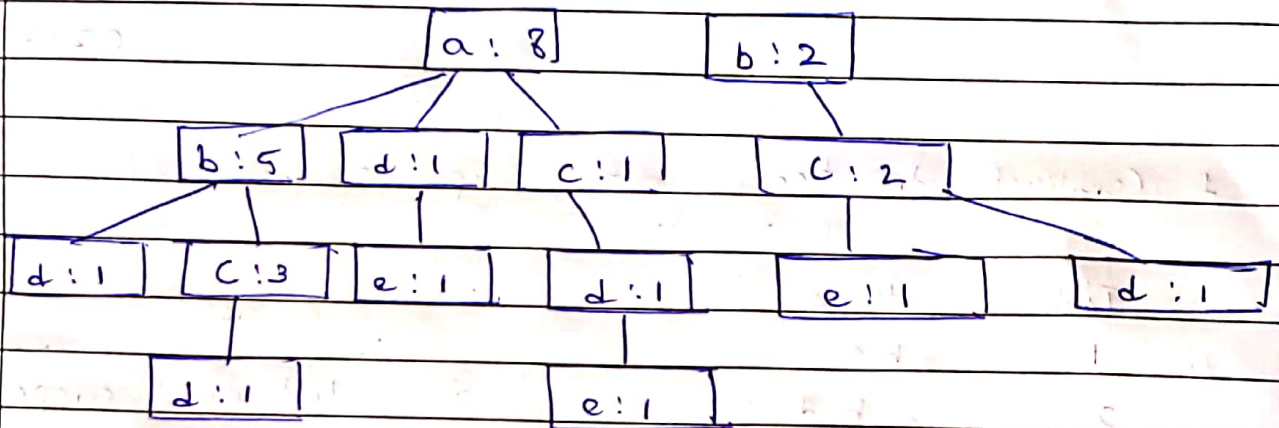 a : 8 b : 2
b : 5 d : 1 c : 1 C : 2
d : 1 C : 3 e : 1 d : 1 e : 1 d : 1
d : 1 e : 1